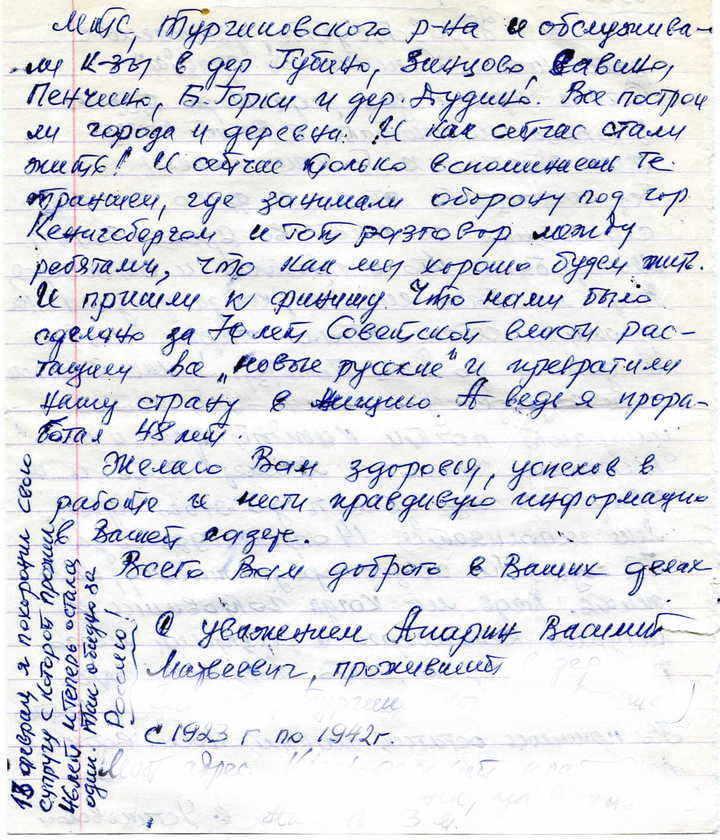 МТС, Тургиновского р-на и обслужива-
ли к-зы в дер Губино, Зинцово, Савино,
Пенчино, Б. Горки и дер. Дудино. Все построи
ли города и деревни. И как сейчас стали
жить! И сейчас только вспоминаем те
траншеи, где занимали оборону под гор
Кенигсбергом и тот разговор между
ребятами, что как мы хорошо будем жить.
И пришли к финишу. Что нами было
сделано за 70 лет Советской власти рас-
тащили все „новые русские" и превратили
нашу страну в нищию А ведь я прора-
ботал 48 лет.
Желаю Вам здоровья, успехов в
работе и нести правдивую информацию
в Вашей газете.
Всего Вам доброго в Ваших делах
С уважением Василий
Матвеевич, проживший
с 1923 г. по 1942 г.
Мой адрес
13 февраля я похоронил свою
супругу с которой прожил
46 лет и теперь остался
один. Так обидно за
Россию!